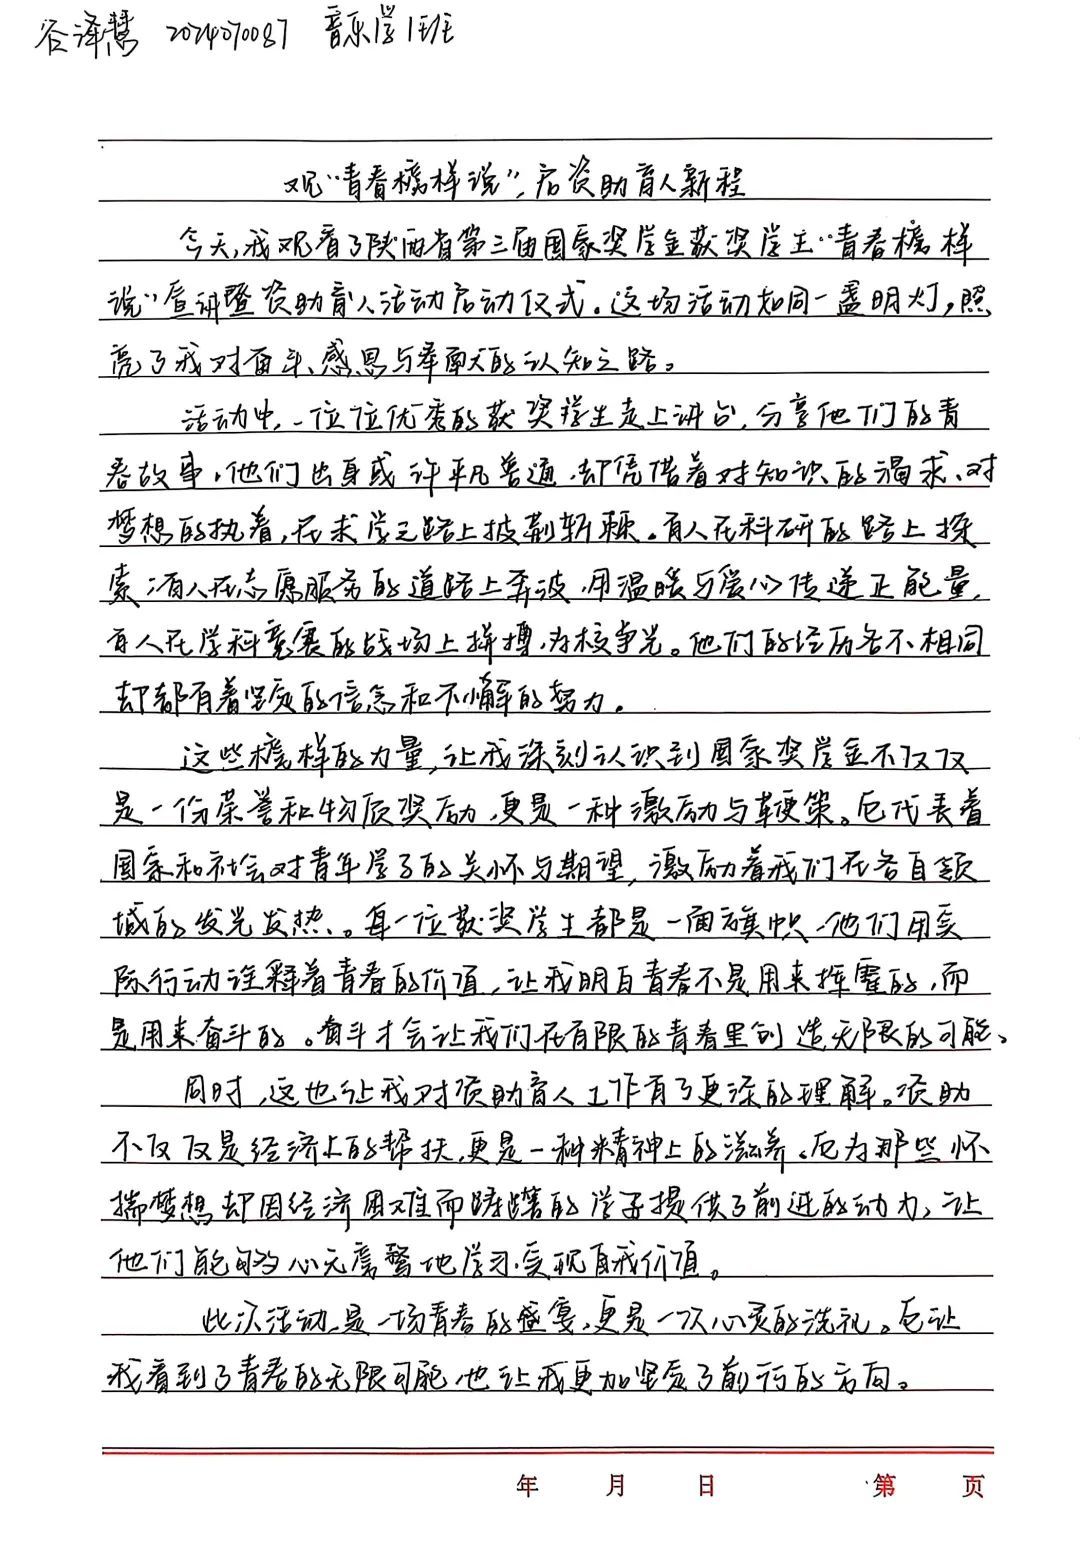 谷泽慧 2024070087 音乐学1班
观“青春榜样说”,启资助育人新程
今天,我观看了陕西省第三届国家奖学金获奖学生“青春榜样
说”宣讲暨资助育人活动启动仪式。这场活动如同一盏明灯,照
亮了我对奋斗、感恩与奉献的认知之路。
活动中,一位位优秀的获奖学生走上讲台,分享他们的青
春故事,他们出身或许平凡普通,却凭借着对知识的渴求、对
梦想的执着,在求学之路上披荆斩棘。有人在科研的路上探
索;有人在志愿服务的道路上奔波,用温暖与爱心传递正能量,
有人在学科竞赛的战场上拼搏,为校争光。他们的经历各不相同
却都有着坚定的信念和不懈的努力。
这些榜样的力量,让我深刻认识到国家奖学金不仅仅
是一份荣誉和物质奖励,更是一种激励与鞭策。它代表着
国家和社会对青年学子的关怀与期望,激励着我们在各自领
域的发光发热、。每一位获奖学生都是一面旗帜,他们用实
际行动诠释着青春的价值,让我明白青春不是用来挥霍的,而
是用来奋斗的。奋斗才会让我们在有限的青春里创造无限的可能。
同时,这也让我对资助育人工作有了更深的理解。资助
不仅仅是经济上的帮扶,更是一种精神上的滋养。它为那些怀
揣梦想却因经济困难而踌躇的学子提供了前进的动力,让
他们能够心无旁骛地学习,实现自我价值。
此次活动,是一场青春的盛宴,更是一次心灵的洗礼。它让
我看到了青春的无限可能,也让我更加坚定了前行的方向。
年 月 日 第 页